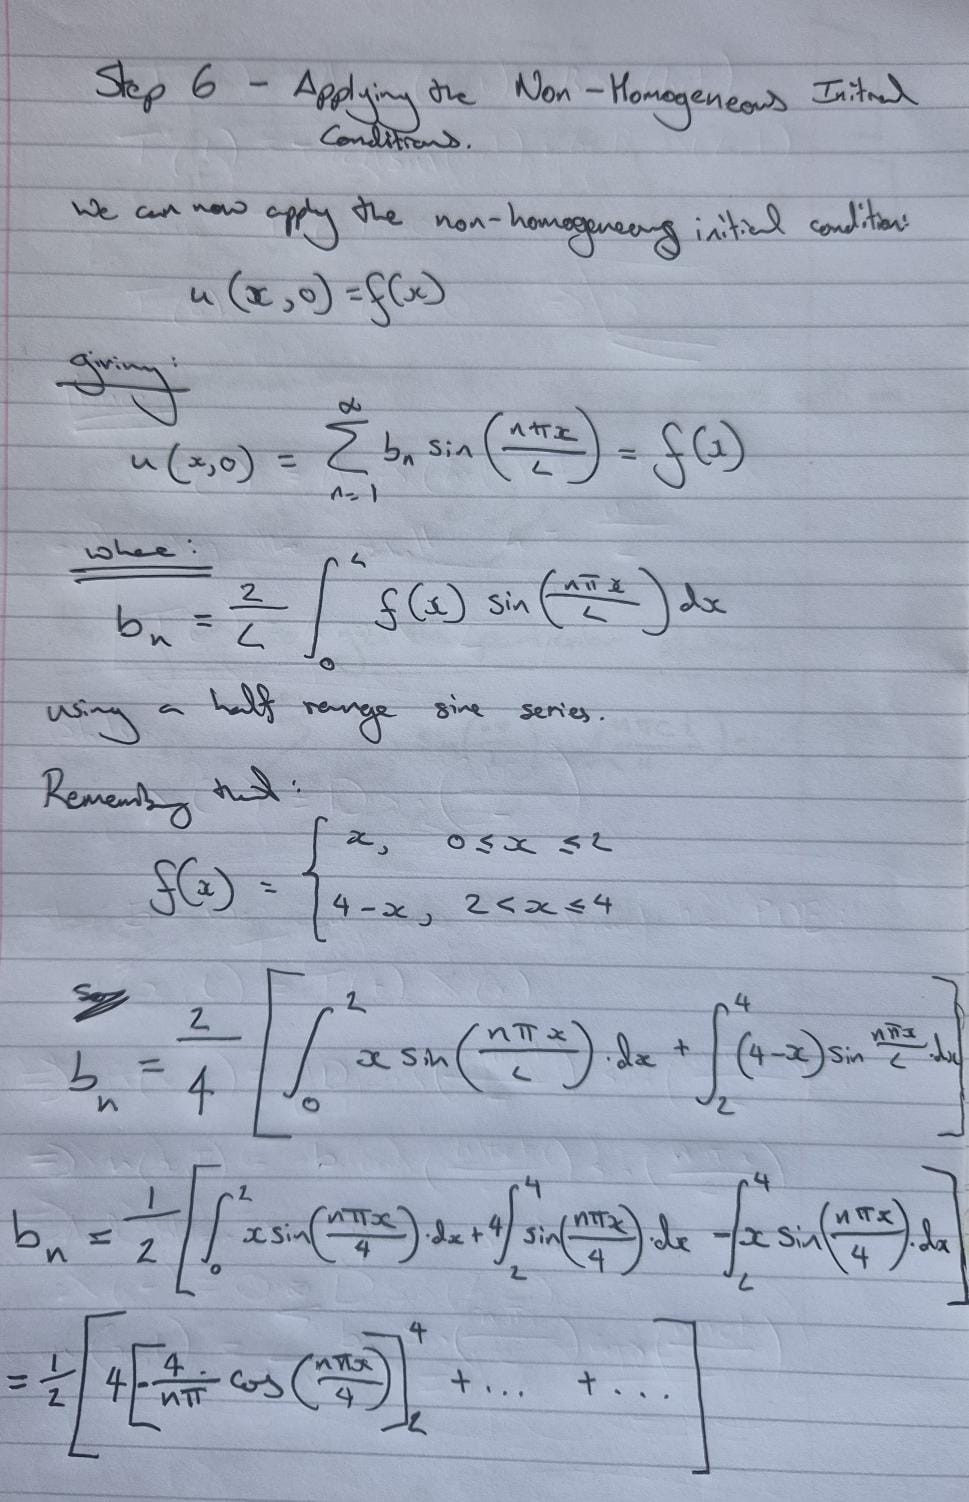 Step 6 - Applying the Non-Homogeneous Initial
Conditions.
We can now apply the non-homogeneous initial condition:
u(x,0)=f(x)
giving:
u(x,0) = ∑_{n=1}^{∞} b_n sin(nπx/L) = f(x)
where:
b_n = 2/L ∫_0^L f(x) sin(nπx/L) dx
using a half range sine series.
Remembring that:
f(x) = { x, 0 ≤ x ≤ 2
4-x, 2 < x ≤ 4
b_n = 2/4 [ ∫_0^2 x sin(nπx/L).dx + ∫_2^4 (4-x) sin nπx/L .dx ]
b_n = 1/2 [ ∫_0^2 x sin(nπx/4).dx + 4∫_2^4 sin(nπx/4).dx - ∫_2^4 x sin(nπx/4).dx ]
= 1/2 [ 4[ -4/nπ . cos(nπx/4) ]_2^4 + ... + ... ]